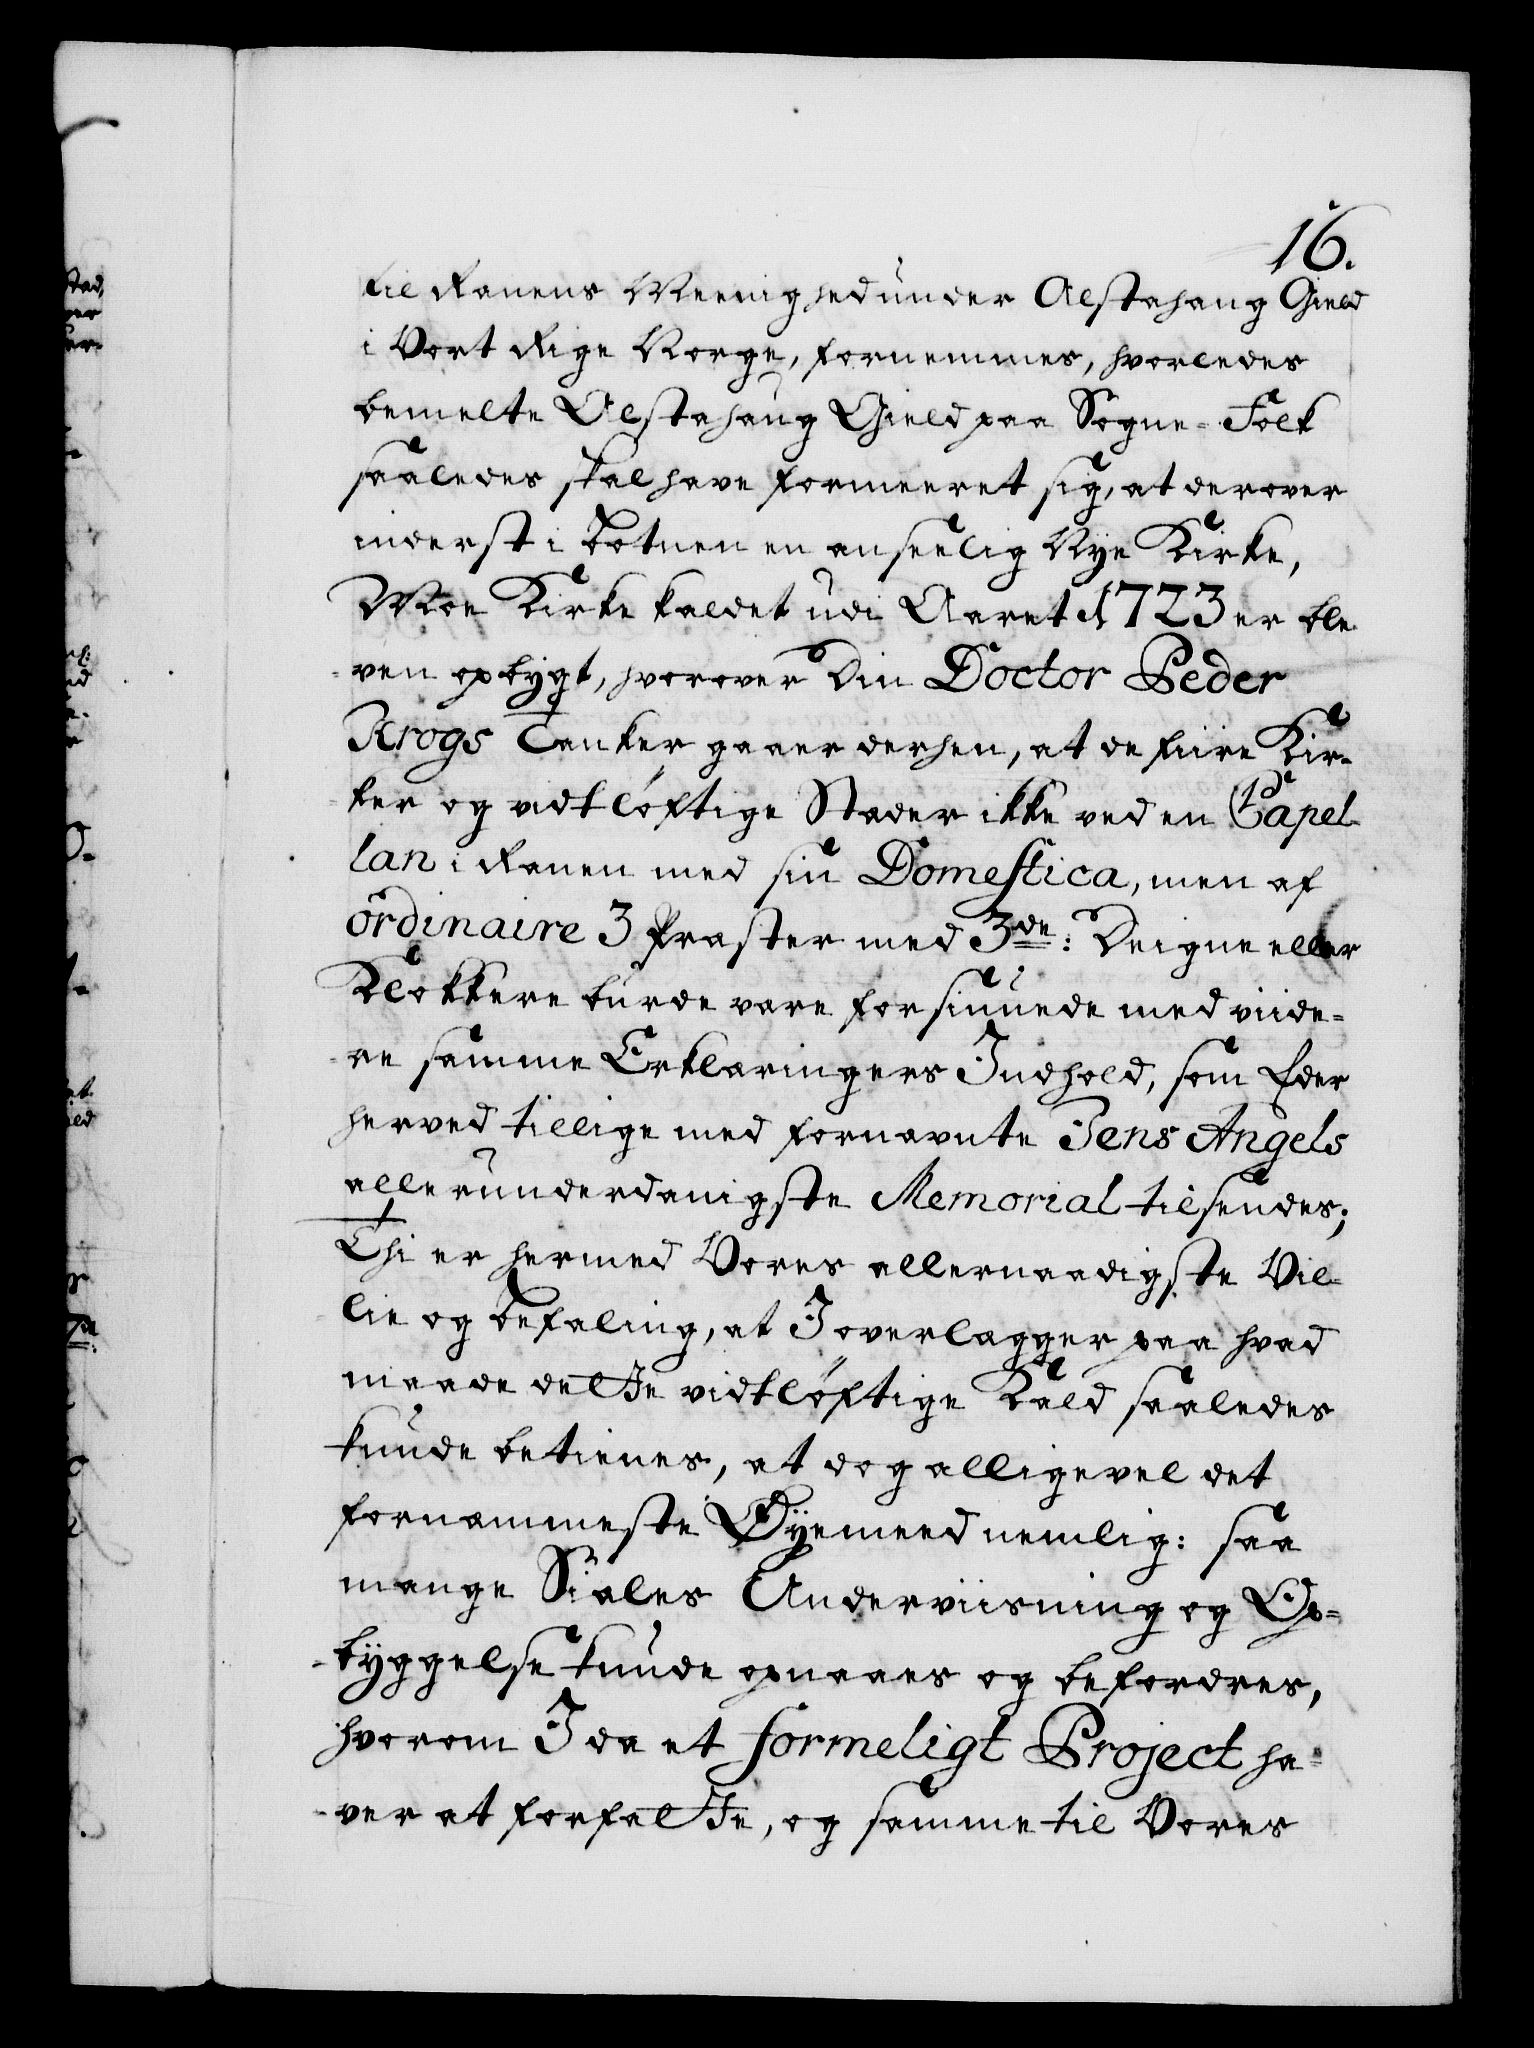 16.
til Ranens Meenighed under Alstahaug Gield
i Vort Rige Norge, fornemmes, hvorledes
bemelte Alstahaug Gield paa Sogne-Folk
saaledes skal have formeeret sig, at derover
inderst i Botnen en anseelig Nye Kirke,
Moe Kirke kaldet udi Aaret 1723 er ble-
ven opbygt, hvorover Din Doctor Peder
Krogs Tanker gaaer derhen, at de fiire Kir-
ker og vidtløftige Stæder ikke ved en Capel-
lan i Ranen med sin Domestica, men af
ordinaire 3 Præster med 3de: Deigne eller
Klokkere burde være forsiunede med viide-
re samme Erklæringers Indhold, som Eder
herved tillige med fornævnte Jens Angels
allerunderdanigste Memorial tilsendes;
Thi er hermed Vores allernaadigste Vil-
lie og Befaling, at I overlægger paa hvad
maade dette vidtløftige Kald saaledes
kunde betienes, at dog alligevel det
fornæmmeste Øyemeed nemlig: saa
mange Siæles Underviisning og Op-
byggelse kunde opnaaes og befordres,
hvorom I da et formeligt Project ha-
ver at forfatte, og samme til Vores